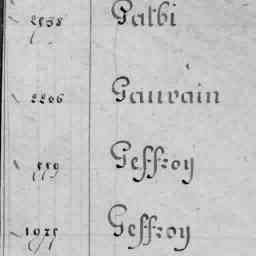 2838 Galbi
2206 Gauvain
559 Geffroy
1975 Geffroy